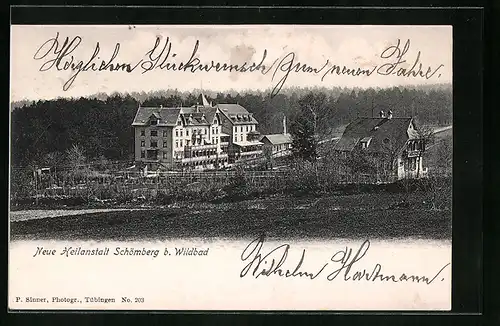 Herzlichen Glückwunsch zum neuen Jahre
Neue Heilanstalt Schömberg b. Wildbad
Wilhelm Hartmann
P. Sinner, Photogr., Tübingen No. 203